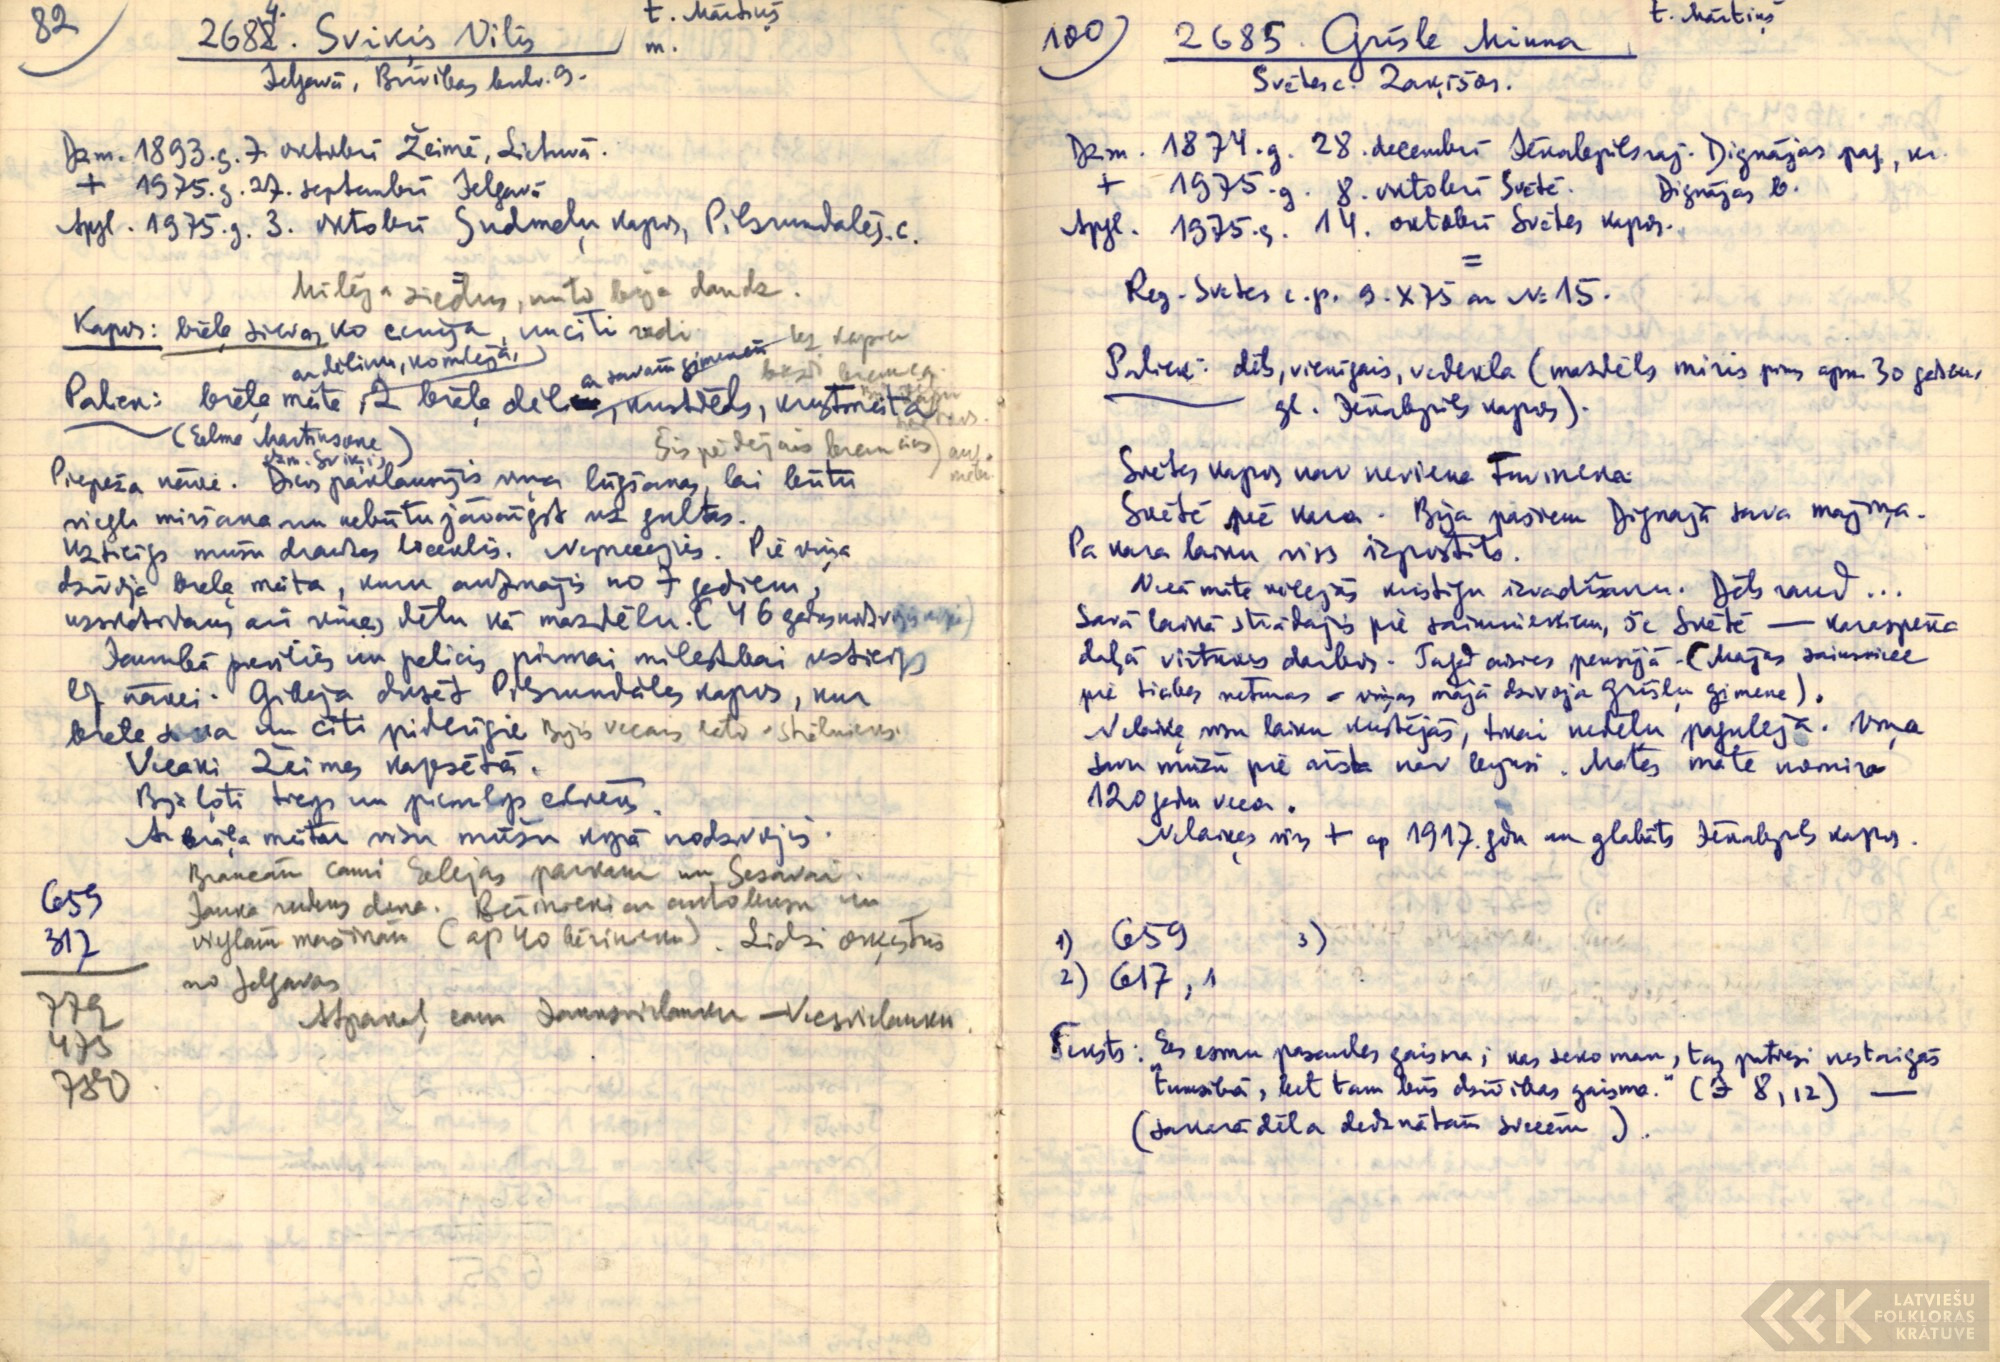 82
2684. Sviķis Vilis
t. Mārtiņš
m.
Jelgavā, Brīvības bulv. 9.
Dzm. 1893. g. 7. oktobrī Žeimē, Lietuvā.
+ 1975. g. 27. septembrī Jelgavā
Apgl. 1975. g. 3. oktobrī Sudmaļu kapos, Pilsrundāles c.
Mīlēja ziedus, un to bija daudz.
Kapos: brāļa sievas, ko cenīja, un citi radi
ar dēliem, Komlejā,
ar savām ģimenēm
Paliek: brāļa meita, 2 brāļa dēli, krustdēls, krustmeita
(Selma Martinsone
dzm. Sviķis)
Šis pēdējais
Piepeža nāve. Dievs paklausījis viņa lūgšanas, lai būtu
viegla miršana un nebūtu jāvārgst uz gultas.
Uzticīgs mūsu draudzes loceklis. Neprecējies. Pie viņa
dzīvoja brāļa meita, kuru audzinājis no 7 gadiem,
uzskatīdams arī viņas dēlu kā mazdēlu. (46 gadus
Jaunībā pievīlies un palicis pirmai mīlestībai uzticīgs
līdz nāvei. Gribēja dusēt Pilsrundāles kapos, kur
brāļa sieva un citi piederīgie Bijis vecais latv. strēlnieks.
Vecāki Žeimes kapsētā.
Bija ļoti stegs un cilvēks.
Ar brāļa meitu visu mūžu kopā nodzīvojis.
Braucām cauri Elejas parkam un Sesavai.
Jauka rudens diena. Bērinieki ar autobusu un
vieglām mašīnām (ap 40 bērinieku). Līdzi orķestris
no Jelgavas
Atpakaļ caur Jaunsvirlauku - Vecsvirlauku.
659
317
779
475
780.
100
2685. Grīsle Minna
t. Mārtiņš
Svētes c. Zaķīšos.
Dzm. 1874. g. 28. decembrī Jēkabpils raj. Dignājas pag., kr.
+ 1975. g. 8. oktobrī Svētē. Dignājas b.
Apgl. 1975. g. 14. oktobrī Svētes kapos.
=
Reg. Svētes c. p. 9. X 75 ar № 15.
Paliek: dēls, vienīgais, vedekla (mazdēls miris pirms apm 30 gadiem,
gl. Jēkabpils kapos).
Svētes kapos nav neviena tuvinieka.
Svētē pēc kara. Bija pašiem Dignājā sava mājiņa.
Pa kara laiku viss izpostīts.
Vecā māte vēlējās kristīgu izvadīšanu. Dēls raud...
Savā laikā strādājis pie saimniekiem, šc Svētē — karaspēka
daļā virtuves darbos. Tagad aizies pensijā. (Mājas saimniece
pie tiesas netiesas - viņas mājā dzīvoja Grīsļu ģimene).
Nelaiķe visu laiku kustējās, tikai nedēļu pagulēja. Viņa
savu mūžu pie ārsta nav legusi. Mātes māte nomira
120 gadu veca.
Nelaiķes vīrs + ap 1917. gdu un glabāts Jēkabpils kapos.
1) 659 3)
2) 617, 1
Teksts: "Es esmu pasaules gaisma; kas seko man, tas patiesi nestaigās
tumsībā, bet tam būs dzīvības gaisma." (J 8, 12) —
(sakarā dēļa dedzinātām svecēm).
LATVIEŠU
FOLKLORAS
KRĀTUVE